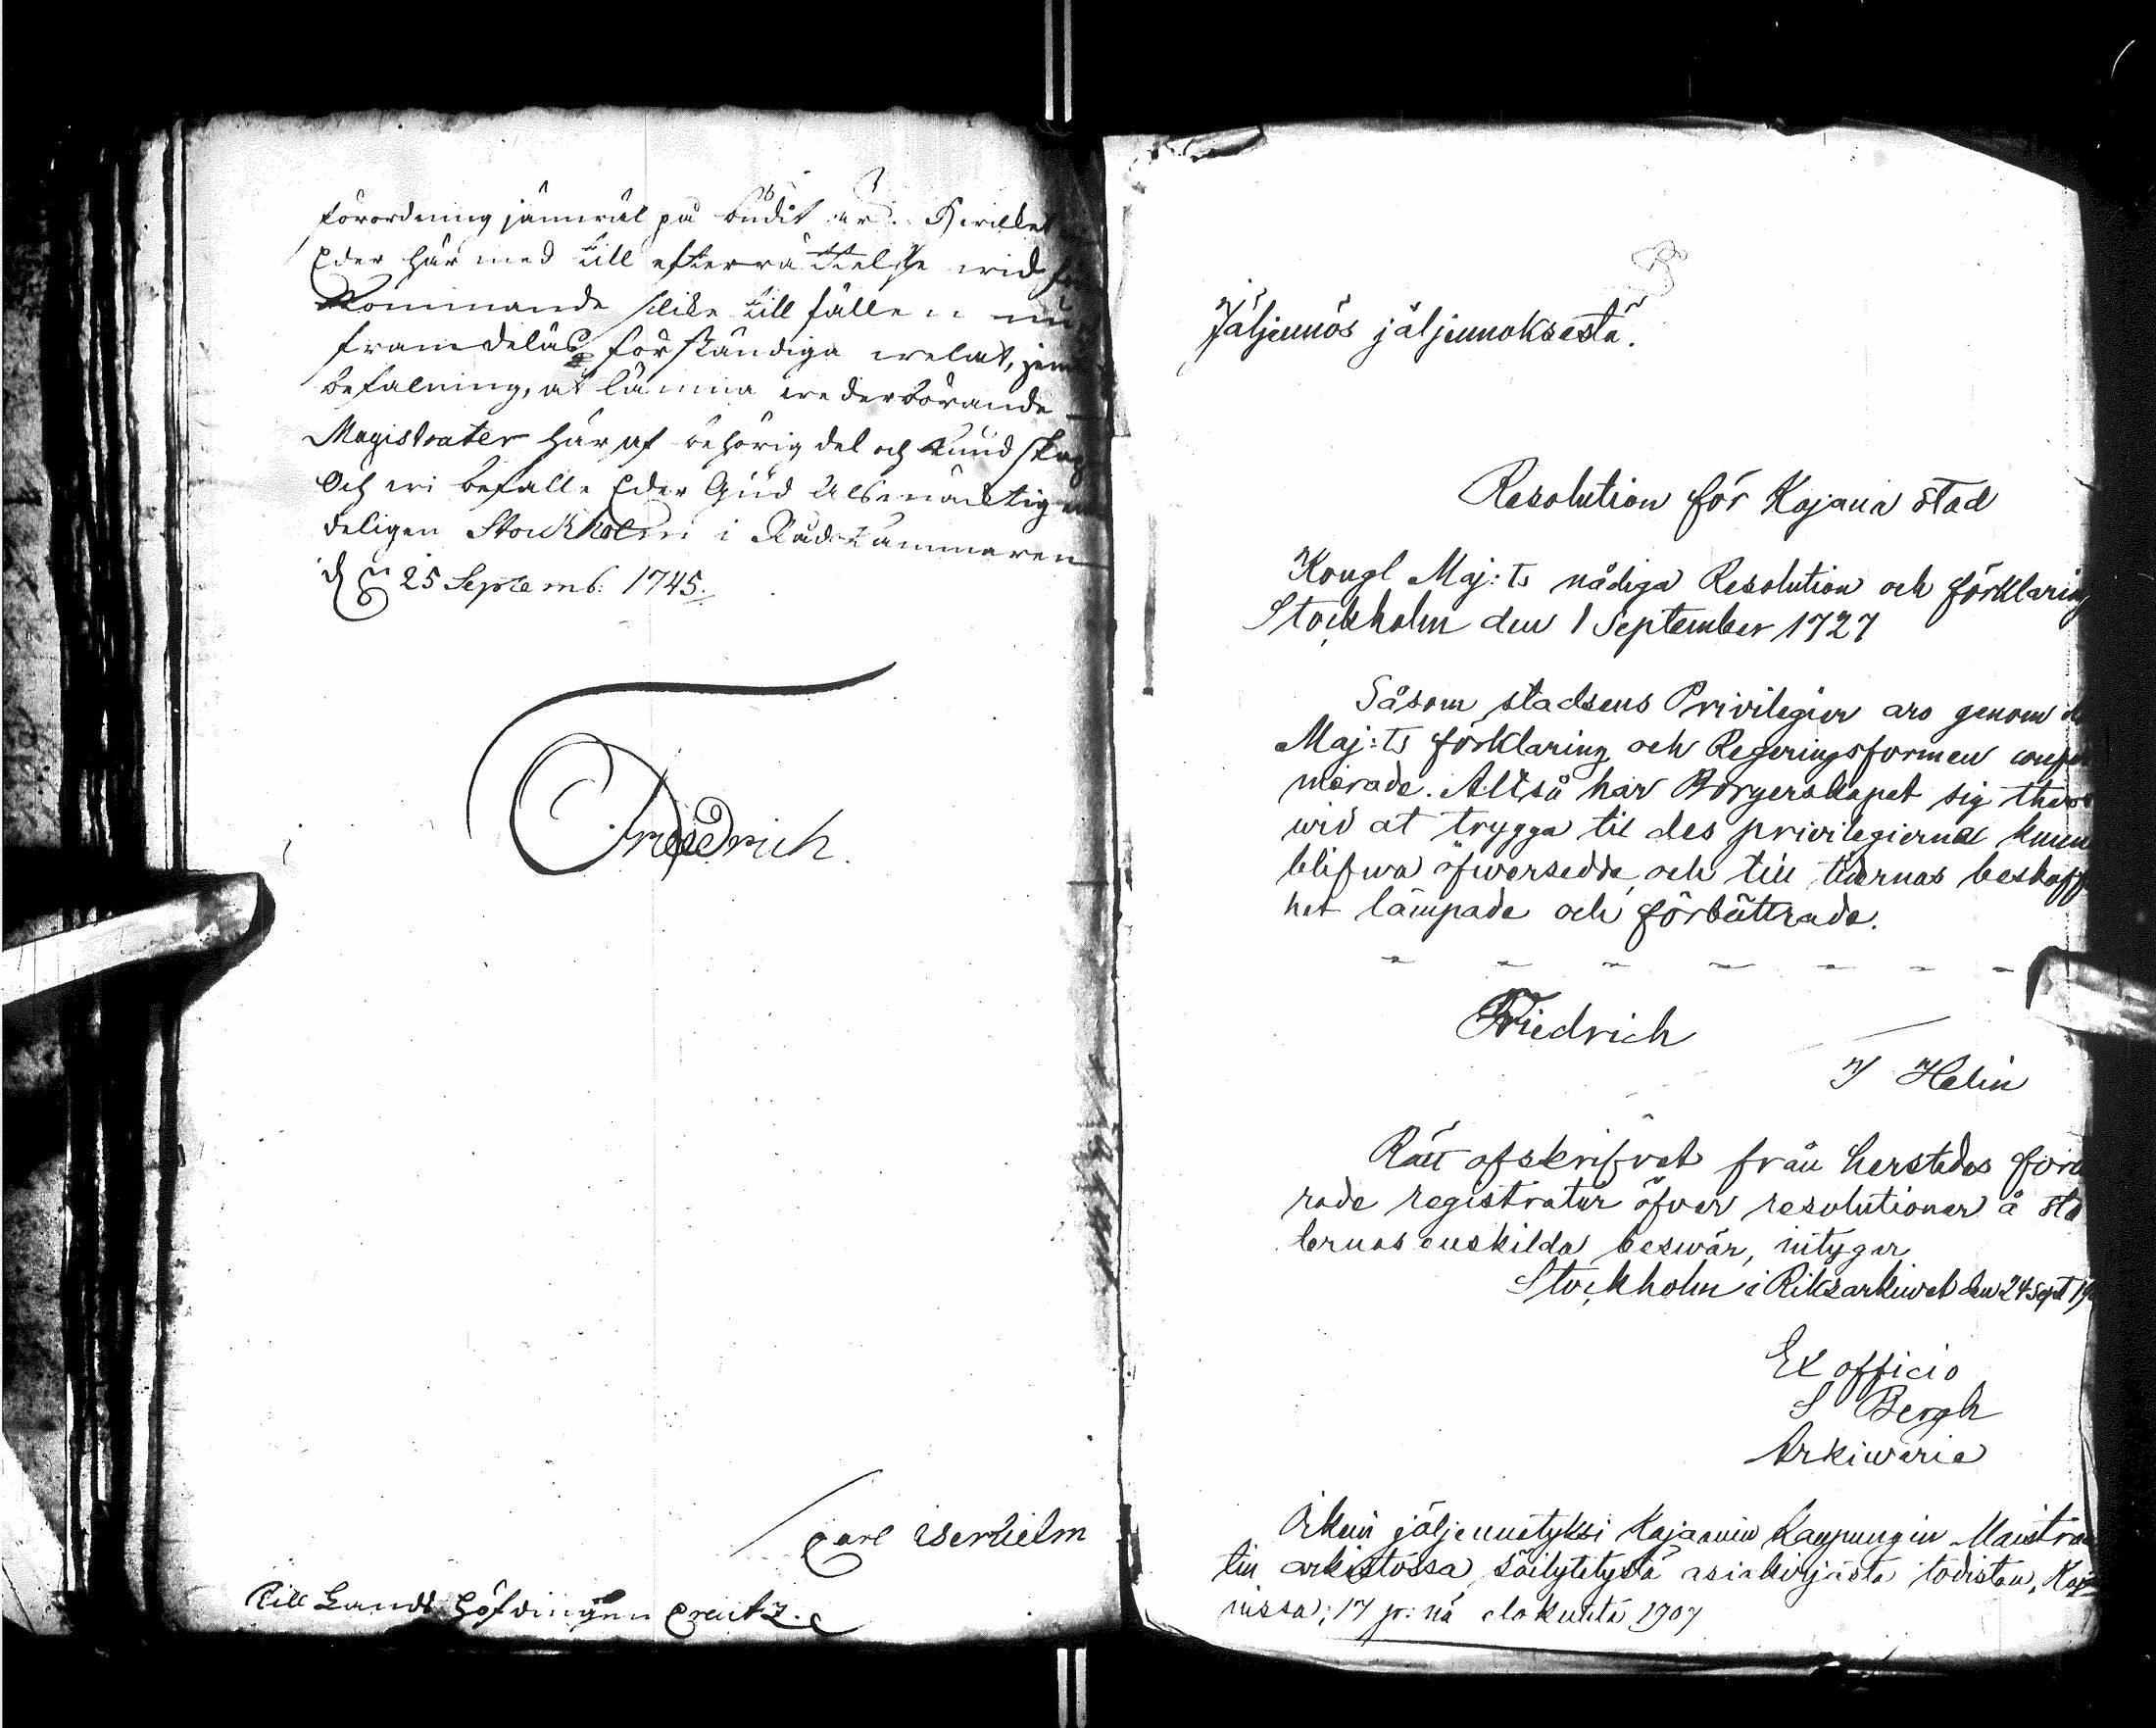 förordning jämwäl på budit är. Hwilket
Eder här med till efterrättelse wid
kommande slike tillfällen
framdeles förständiga welat,
befalning, at lämna wederbörande
Magistrater här af behörig del och kundskap
Och wi befalle Eder Gud Alsmächtig
deligen Stockholm i Rådkammaren
d 25 Septemb: 1745.
Friedrich.
Carl
Till Landshöfdingen Creutz.
Jäljennös jäljennöksestä.
Resolution för Kajana stad
Kongl Maj:ts nådiga Resolution och förklaring
Stockholm den 1 September 1727
Såsom stadsens Privilegier äro genom
Maj:ts förklaring och Regeringsformen confir
merade. Altså har Borgerskapet sig ther
wid at trygga til des privilegierna kunn
blifwa öfwersedde och till tidernas beskaff
het lämpade och förbättrade.
Friedrich
J Helin
Rätt afskrifvet från herstedes förva
rade registratur öfver resolutioner å stä
dernas enskilda beswär, intygar
Stockholm i Riksarkivet den 24 sept 19
Ex officio
S Bergh
Arkiwarie
Oikein jäljennetyksi Kajaanin Kaupungin Maistraa
tin arkistossa säilytetystä asiakirjasta todistan, Kaj
nissa, 17 p:nä elokuuta 1907